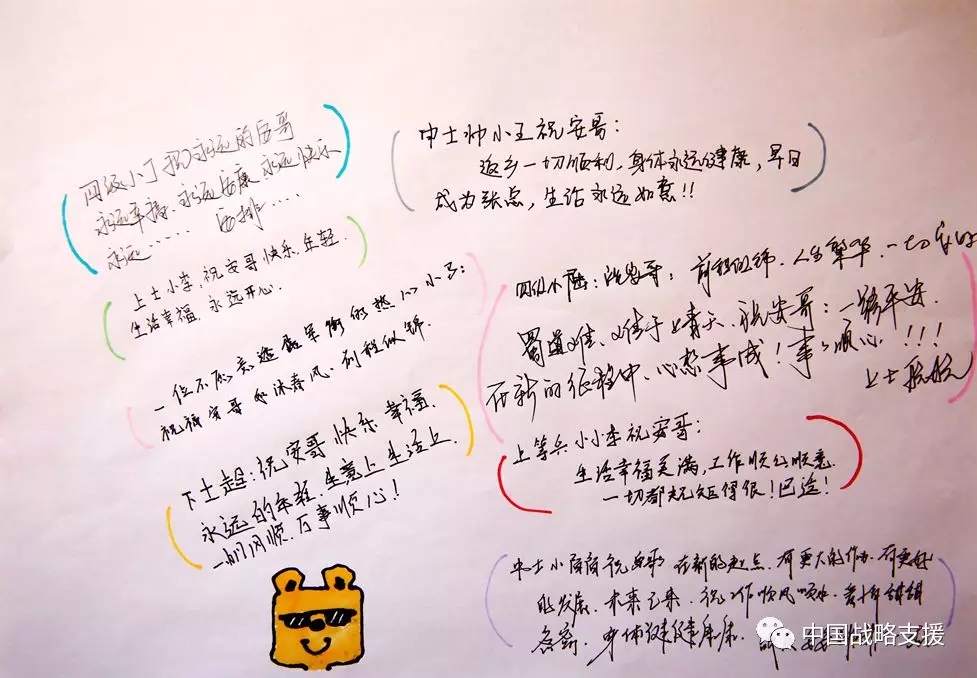 四级小丁祝永远的安哥
永远幸福、永远安康、永远快乐
永远…… 安排……
上士小李:祝安哥快乐,年轻.
生活幸福,永远开心.
一位不愿意透露军衔的热心小王:
祝福安哥如沐春风,前程似锦.
下士赵:祝安哥快乐幸福,
永远的年轻,生意上生活上
一帆风顺,万事顺心!
中士帅小王祝安哥:
返乡一切顺利,身体永远健康,早日
成为 ,生活永远如意!!
四级小陆:祝安哥:前程似锦.人生繁华.一切安好
蜀道难、难于上青天.祝安哥:一路平安.
在新的征程中、心想事成!事事顺心!!!
上士
上等兵小小李祝安哥:
生活幸福美满,工作顺心顺意.
一切都 得很!巴适!
中士小 祝安哥 在新的起点,有更大的作为.有更好
的发展.未来已来.祝工作顺风顺水.
身体健健康康.
中国战略支援